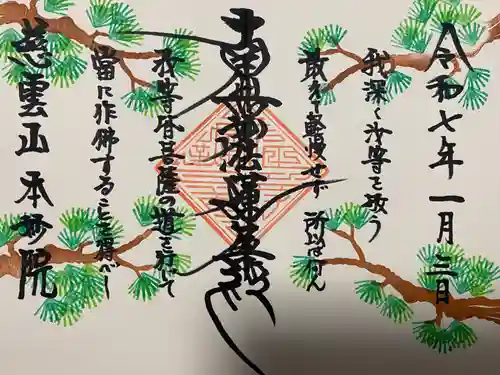 令和七年一月三日
我深く汝等を敬う
敢えて軽慢せず 所以は何ん
南無妙法蓮華経
汝等皆菩薩の道を行じて
當に作佛することを得べし
慈雲山 本妙院